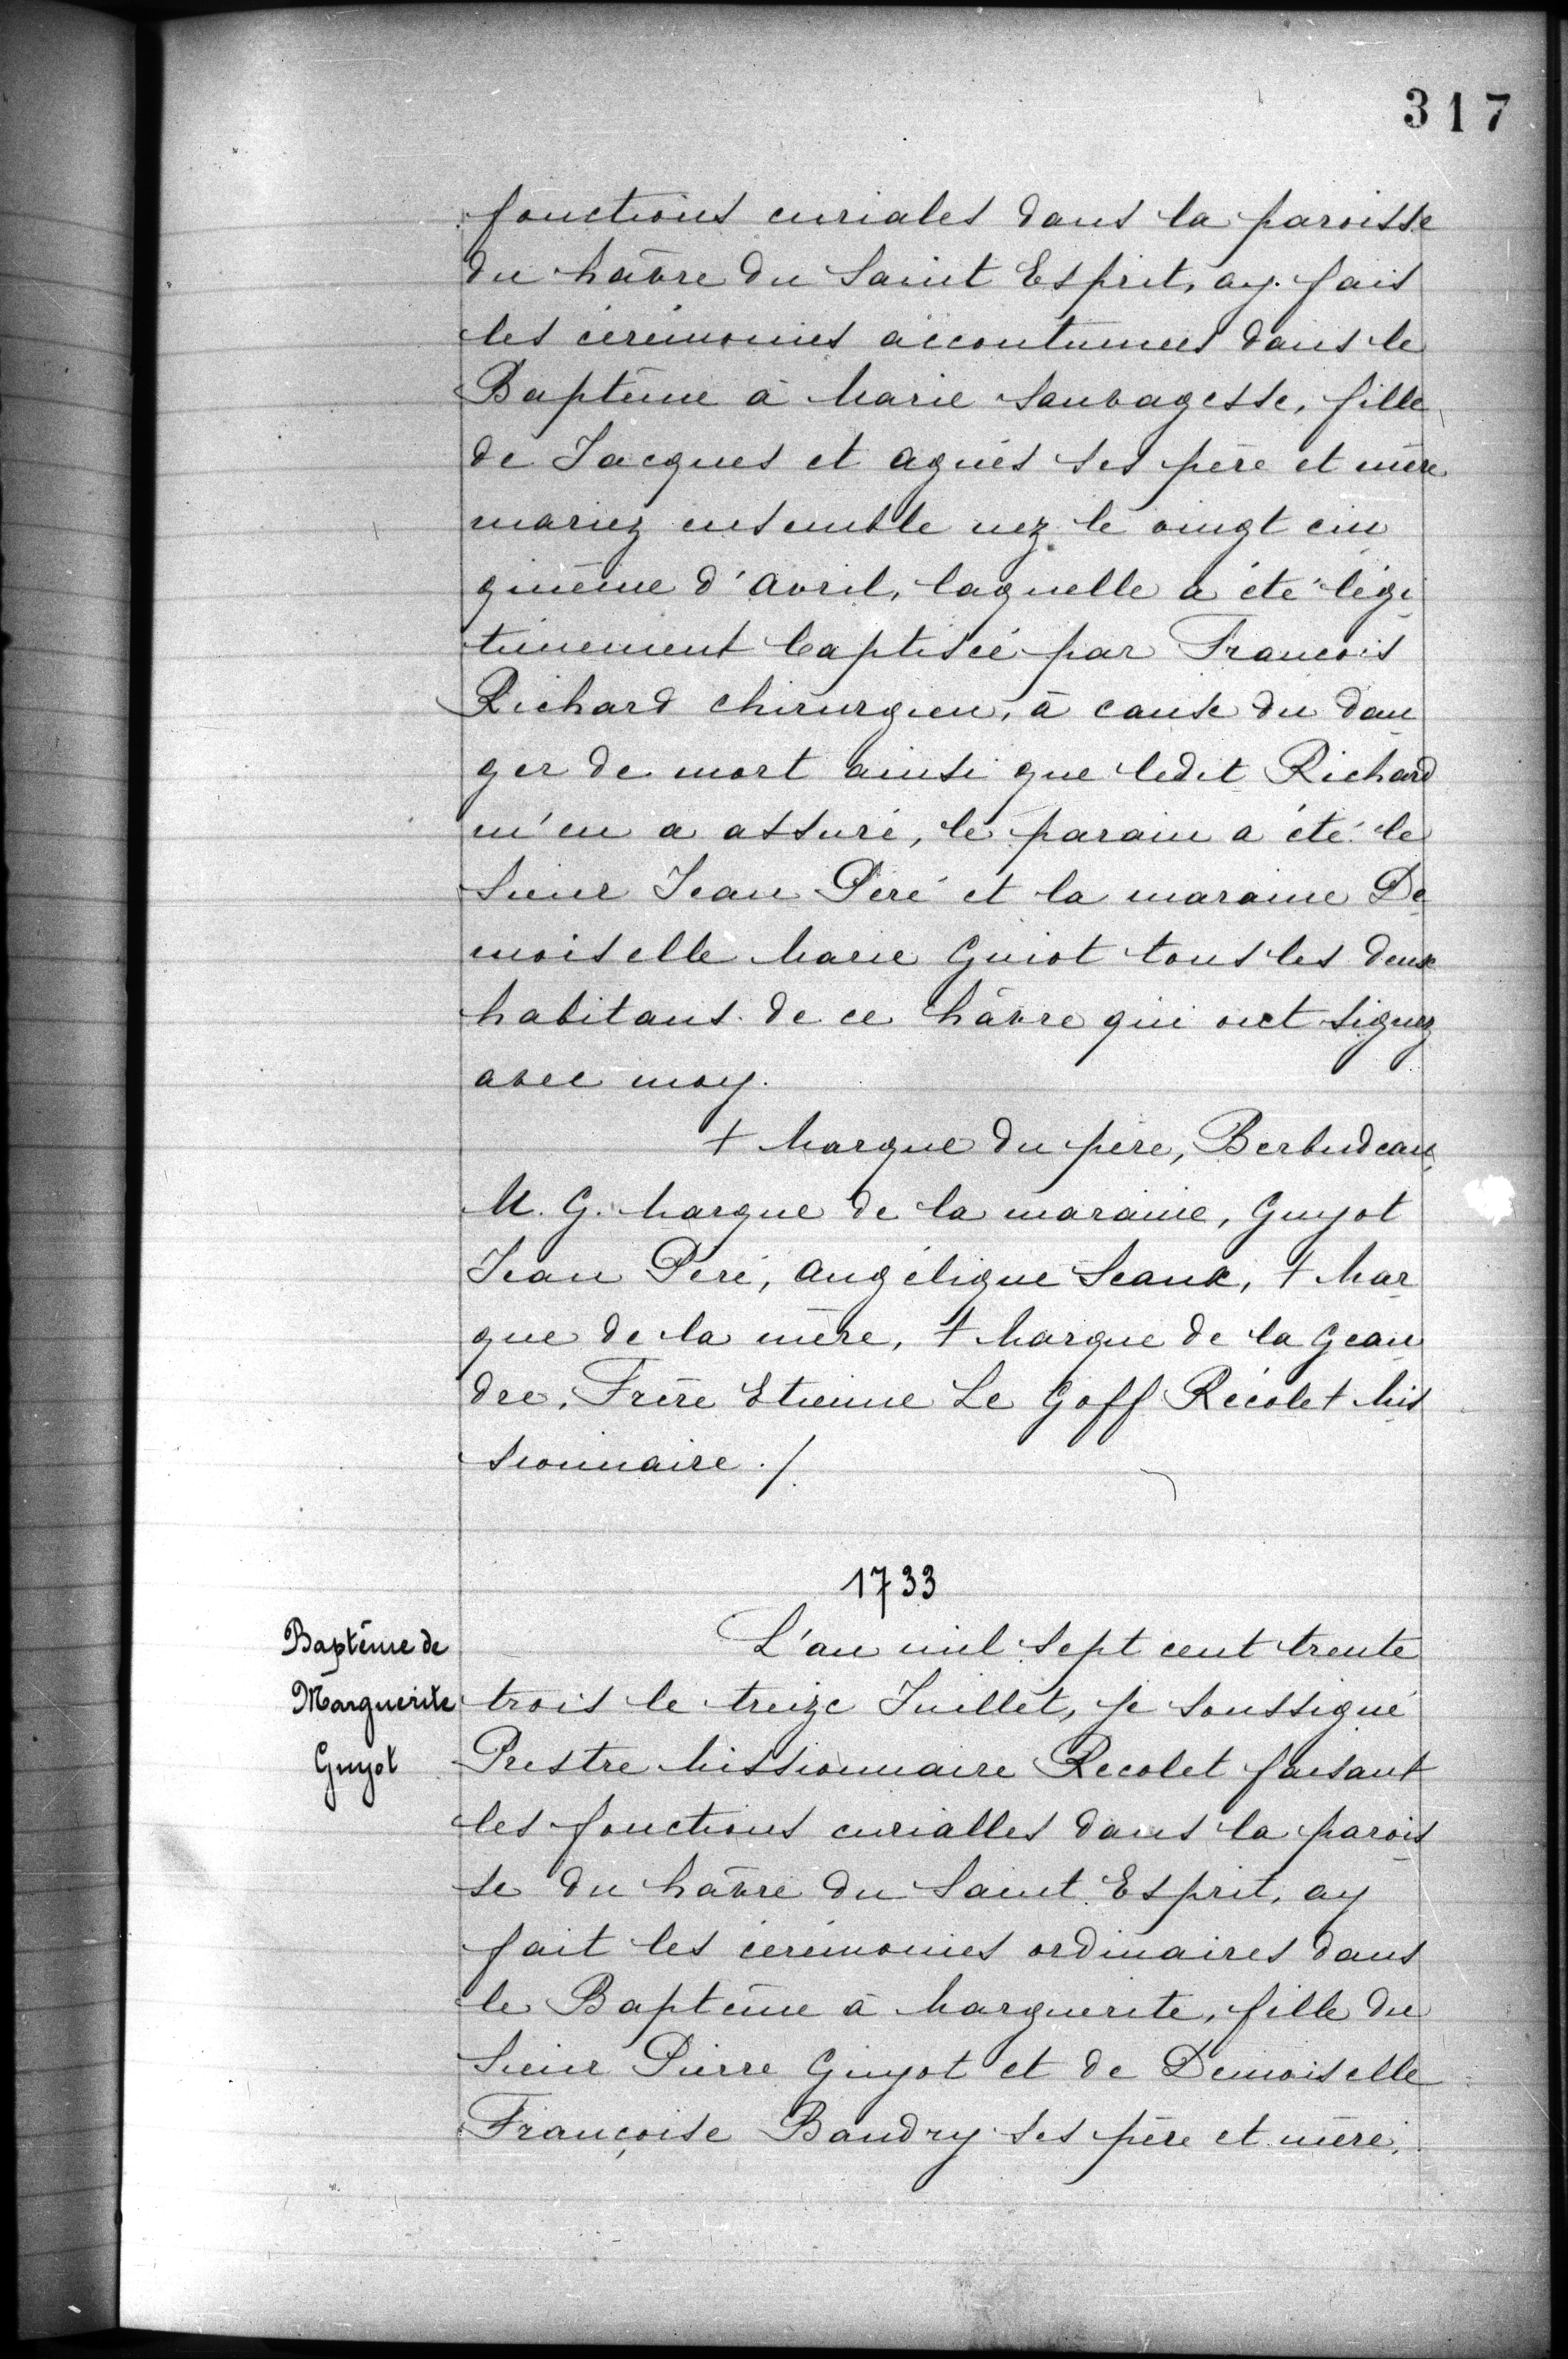 317
fonctions curiales dans la paroisse
du hâvre du Saint Esprit, ay fais
les cérémonies accoutumées dans le
Baptême à Marie Sauvagesse, fille
de Jacques et agnès ses père et mère
mariez ensemble nez le vingt cin
quième d'avril, laquelle a été légi
timement baptisée par Francois
Richard chirurgien, à cause du dan
ger de mort ainsi que ledit Richard
m'en a assuré, le parain a été le
Sieur Jean Péré et la maraine De
moiselle Marie Guiot tous les deux
habitans de ce hâvre qui ont signez
avec moy.
+ Marque du père, Berbudeau,
M. G. Marque de la maraine, Guyot
Jean Péré, angélique Seaux, + Mar
que de la mère, + Marque de la Gean
dre, Frère Etienne Le Goff Récolet Mis
sionnaire ./.
1733
Baptême de
Marguerite
Guyot
L'an mil sept cent trente
trois le treize Juillet, je soussigné
Prestre Missionnaire Recolet faisant
les fonctions curialles dans la parois
se du hâvre du Saint Esprit, ay
fait les cérémonies ordinaires dans
le Baptême à Marguerite, fille du
Sieur Pierre Guyot et de Demoiselle
Françoise Baudry ses père et mère,